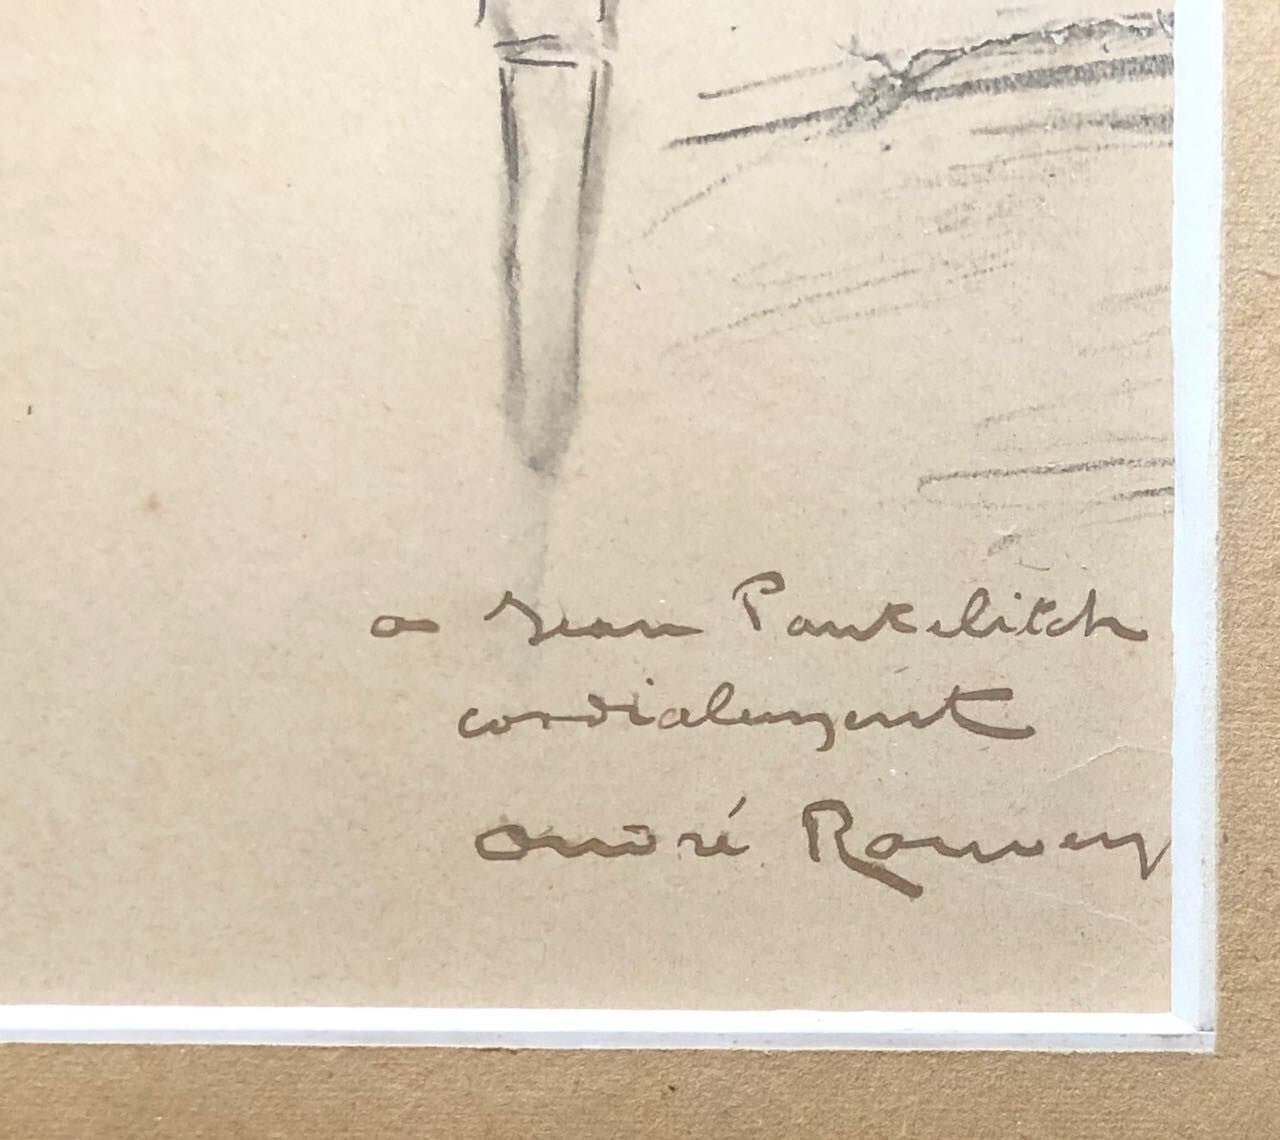 a Jean Pantelitch
cordialement
André Rouveyr